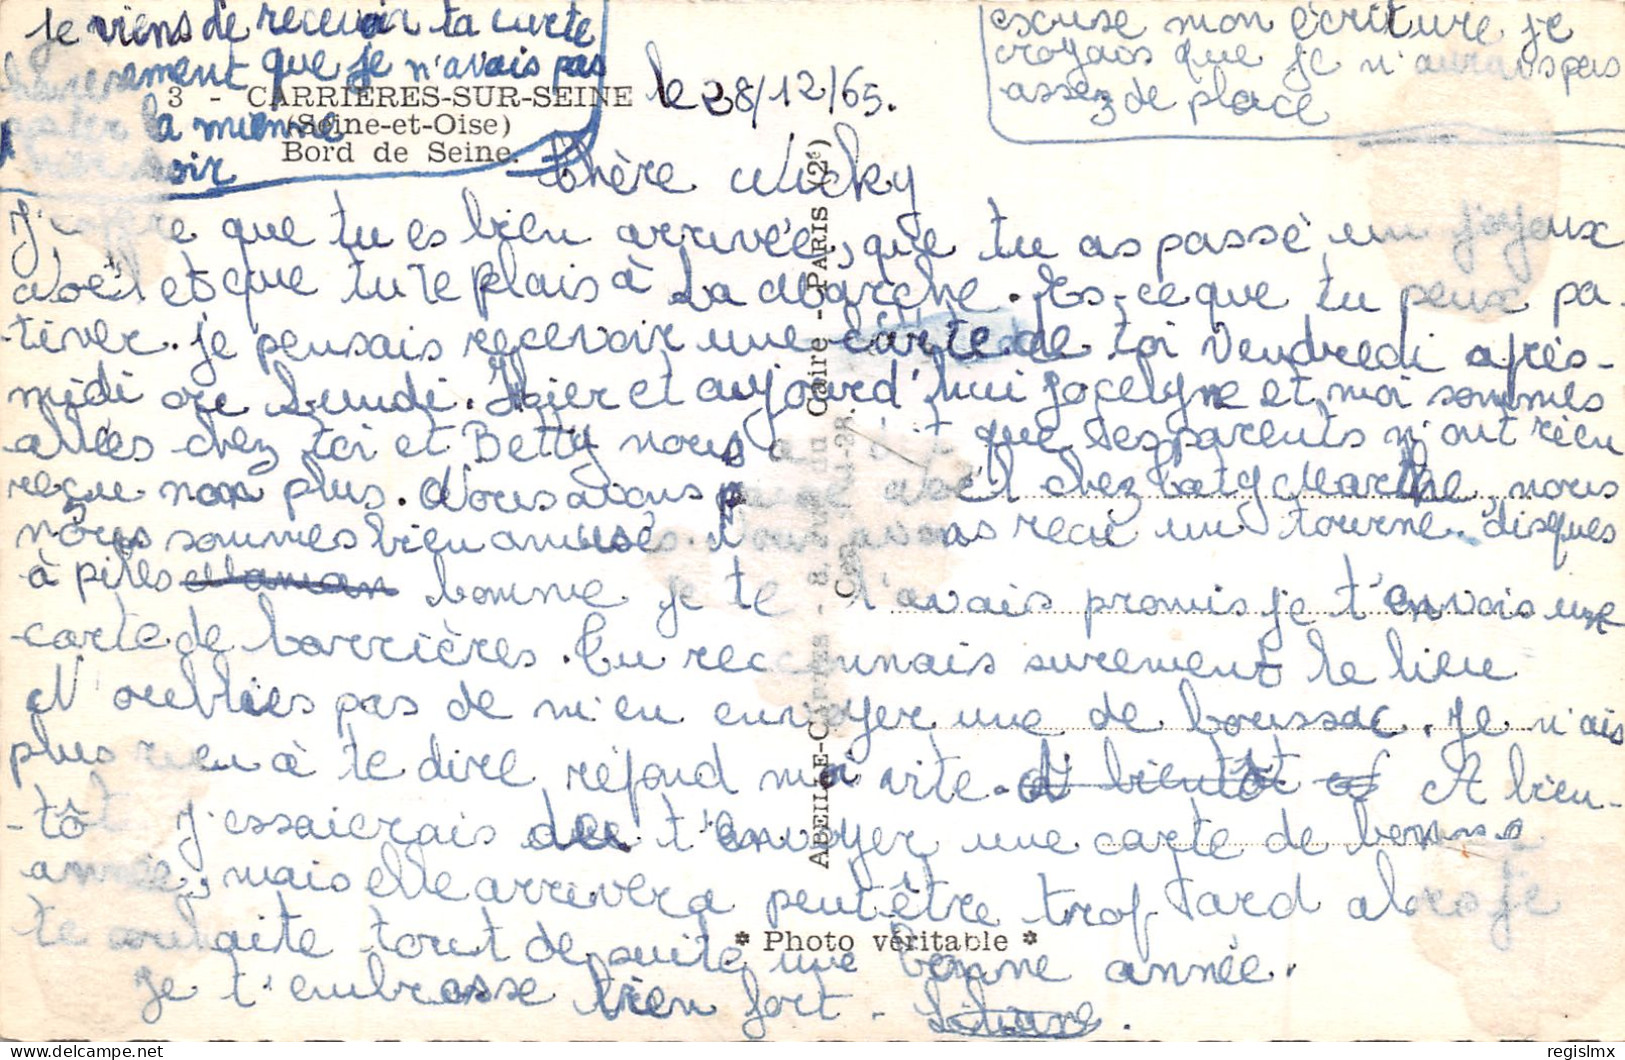 je viens de recevoir ta carte
heureusement que je n'avais pas
poster la mienne
hier soir
excuse mon écriture je
croyais que je n'aurais pas
assez de place
3 - CARRIÈRES-SUR-SEINE
(Seine-et-Oise)
Bord de Seine.
le 28/12/65.
Chère Nicky
J'espère que tu es bien arrivée, que tu as passé un joyeux
Noël et que tu te plais à La Marche. Es-ce que tu peux pa-
-tiner. je pensais recevoir une carte de toi Vendredi après-
midi ou Lundi. Hier et aujourd'hui Jocelyne et moi sommes
allées chez toi et Betty nous a dit que tes parents n'ont rien
reçu non plus. Nous avons Noël chez Marthe, nous
nous sommes bien amusés. Nous avons reçu un tourne-disques
à piles Maman comme je te l'avais promis je t'envois une
-carte de Carrières. Tu reconnais surement le lieu
N'oublies pas de m'en envoyer une de Boussac. Je n'ais
plus rien à te dire répond moi vite. A bientôt A bien-
-tôt J'essaierais de t'envoyer une carte de bonne
année, mais elle arrivera peut être trop tard alors je
te souhaite tout de suite une bonne année.
Je t'embrasse bien fort - Liliane.
* Photo véritable *
ABEILLE-CARTES - 8, rue du Caire - PARIS (2e)
regislmx